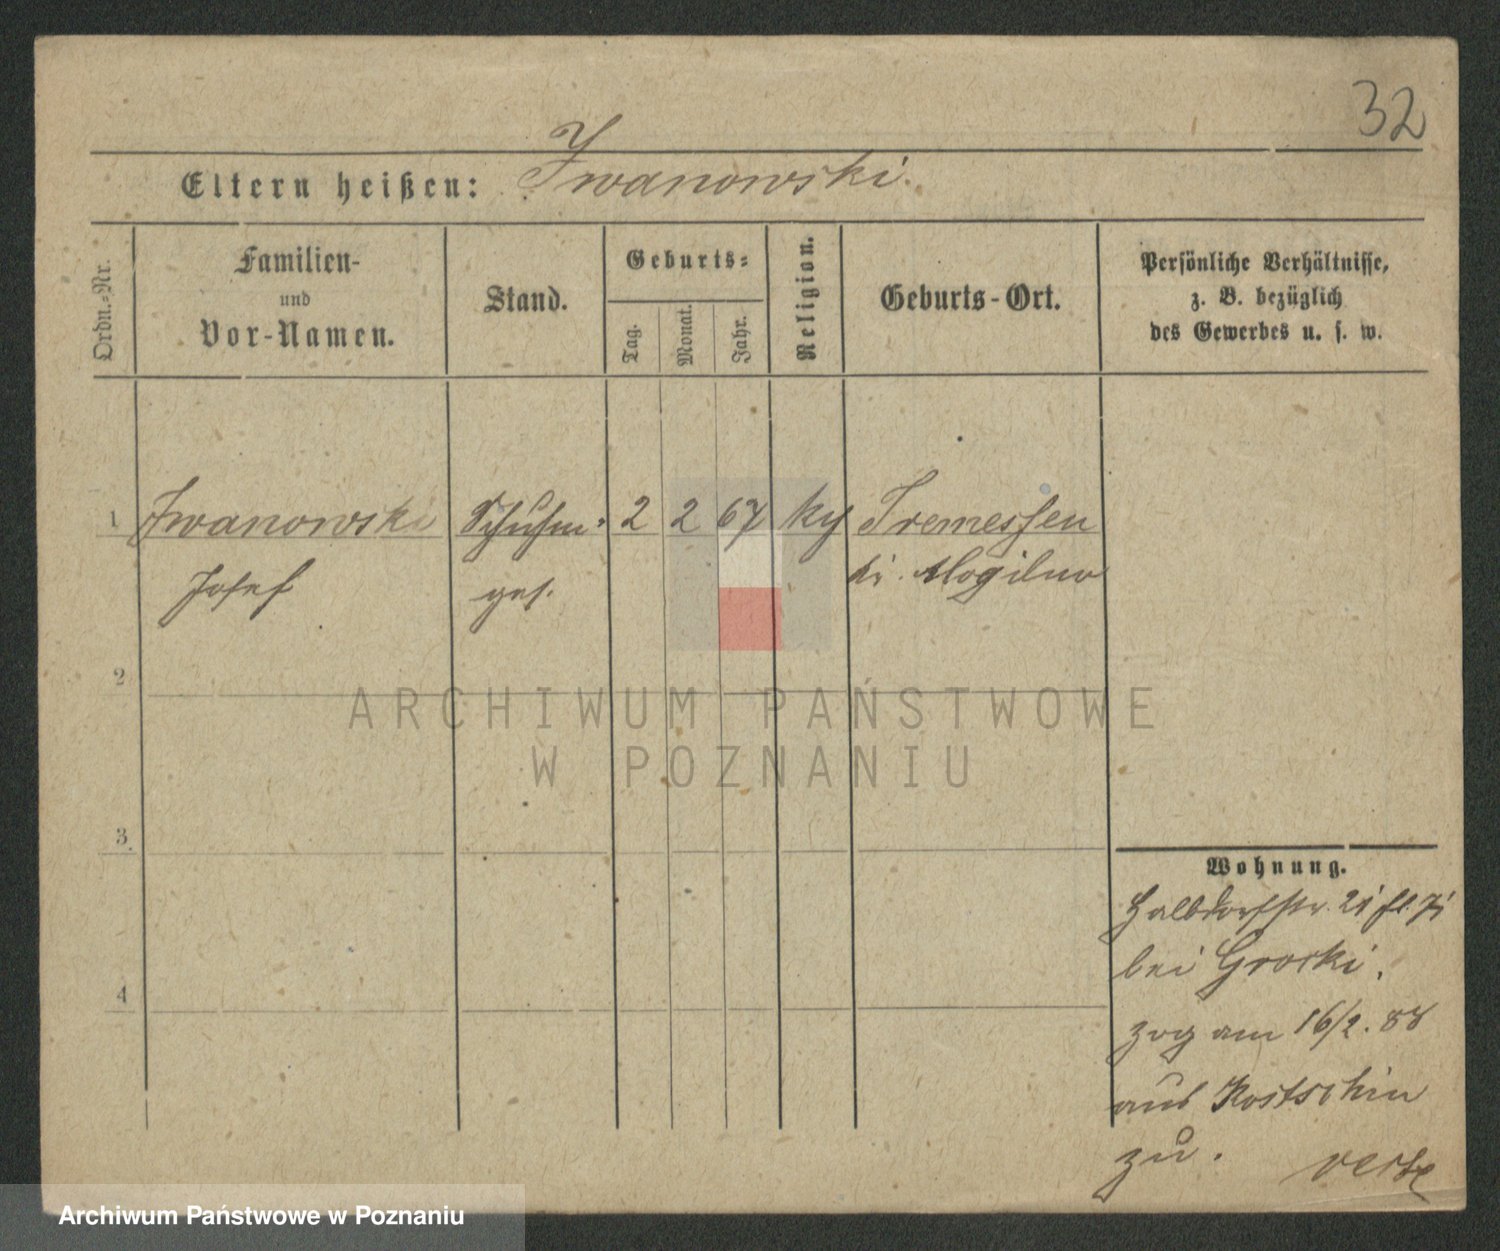 32
Eltern heißen: Iwanowski.
Ordn.-Nr.
Familien-
und
Vor-Namen.
Stand.
Geburts-
Tag.
Monat.
Jahr.
Religion.
Geburts-Ort.
Persönliche Verhältnisse,
z. B. bezüglich
des Gewerbes u. s. w.
1 Iwanowski Schuhm- 2 2 67 Tremessen
Josef ges. Kr. Mogilno
2
ARCHIWUM PAŃSTWOWE
W POZNANIU
3
Wohnung.
Halbdorfstr. 21
bei Grocki.
4
zog am 16/2. 88
aus Kostschin
zu.
Archiwum Państwowe w Poznaniu